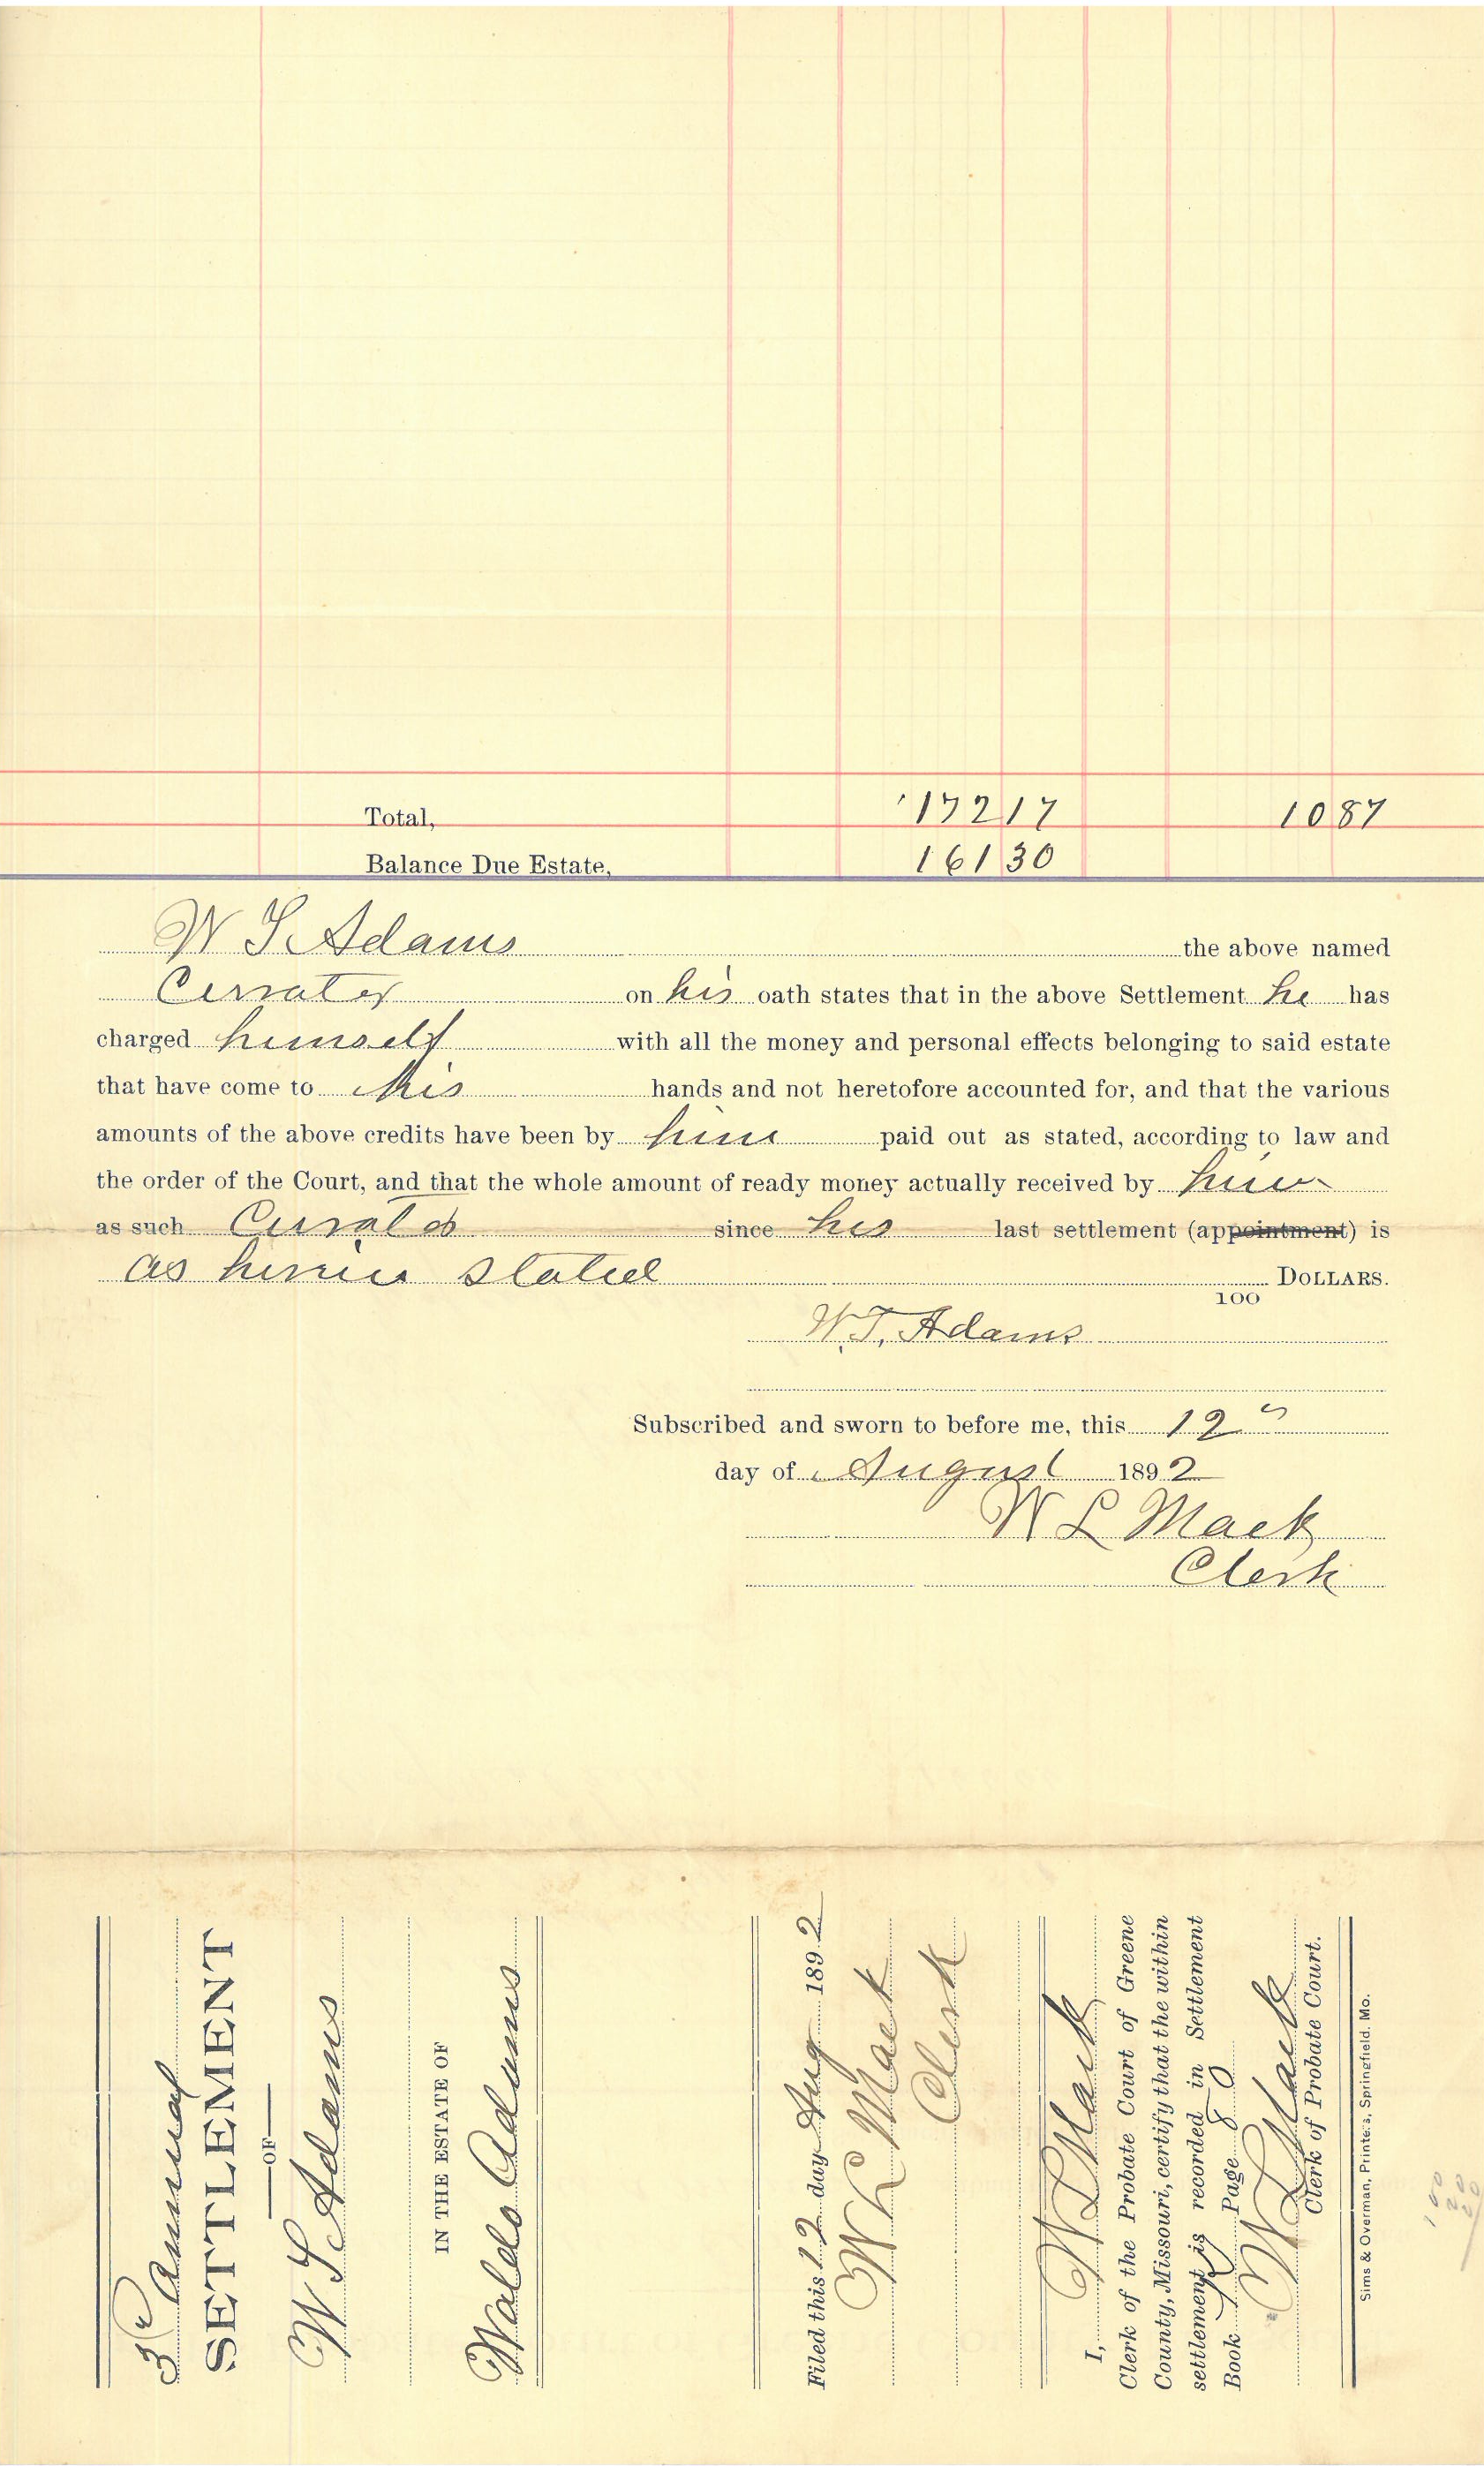 Total, 172 17 10 87
Balance Due Estate, 161 30
W T Adams the above named
Curator on his oath states that in the above Settlement he has
charged himself with all the money and personal effects belonging to said estate
that have come to his hands and not heretofore accounted for, and that the various
amounts of the above credits have been by him paid out as stated, according to law and
the order of the Court, and that the whole amount of ready money actually received by him
as such Curator since his last settlement (appointment) is
as herein stated DOLLARS.
100
W.T. Adams
Subscribed and sworn to before me, this 12
day of August 1892
W L Mack
Clerk
3r Annual
SETTLEMENT
OF
W T Adams
IN THE ESTATE OF
Waldo Adams
Filed this 12 day Aug 1892
W L Mack
Clerk
I, W L Mack
Clerk of the Probate Court of Greene
County, Missouri, certify that the within
settlement is recorded in Settlement
Book Page 80
W L Mack
Clerk of Probate Court.
Sims & Overman, Printers, Springfield, Mo.